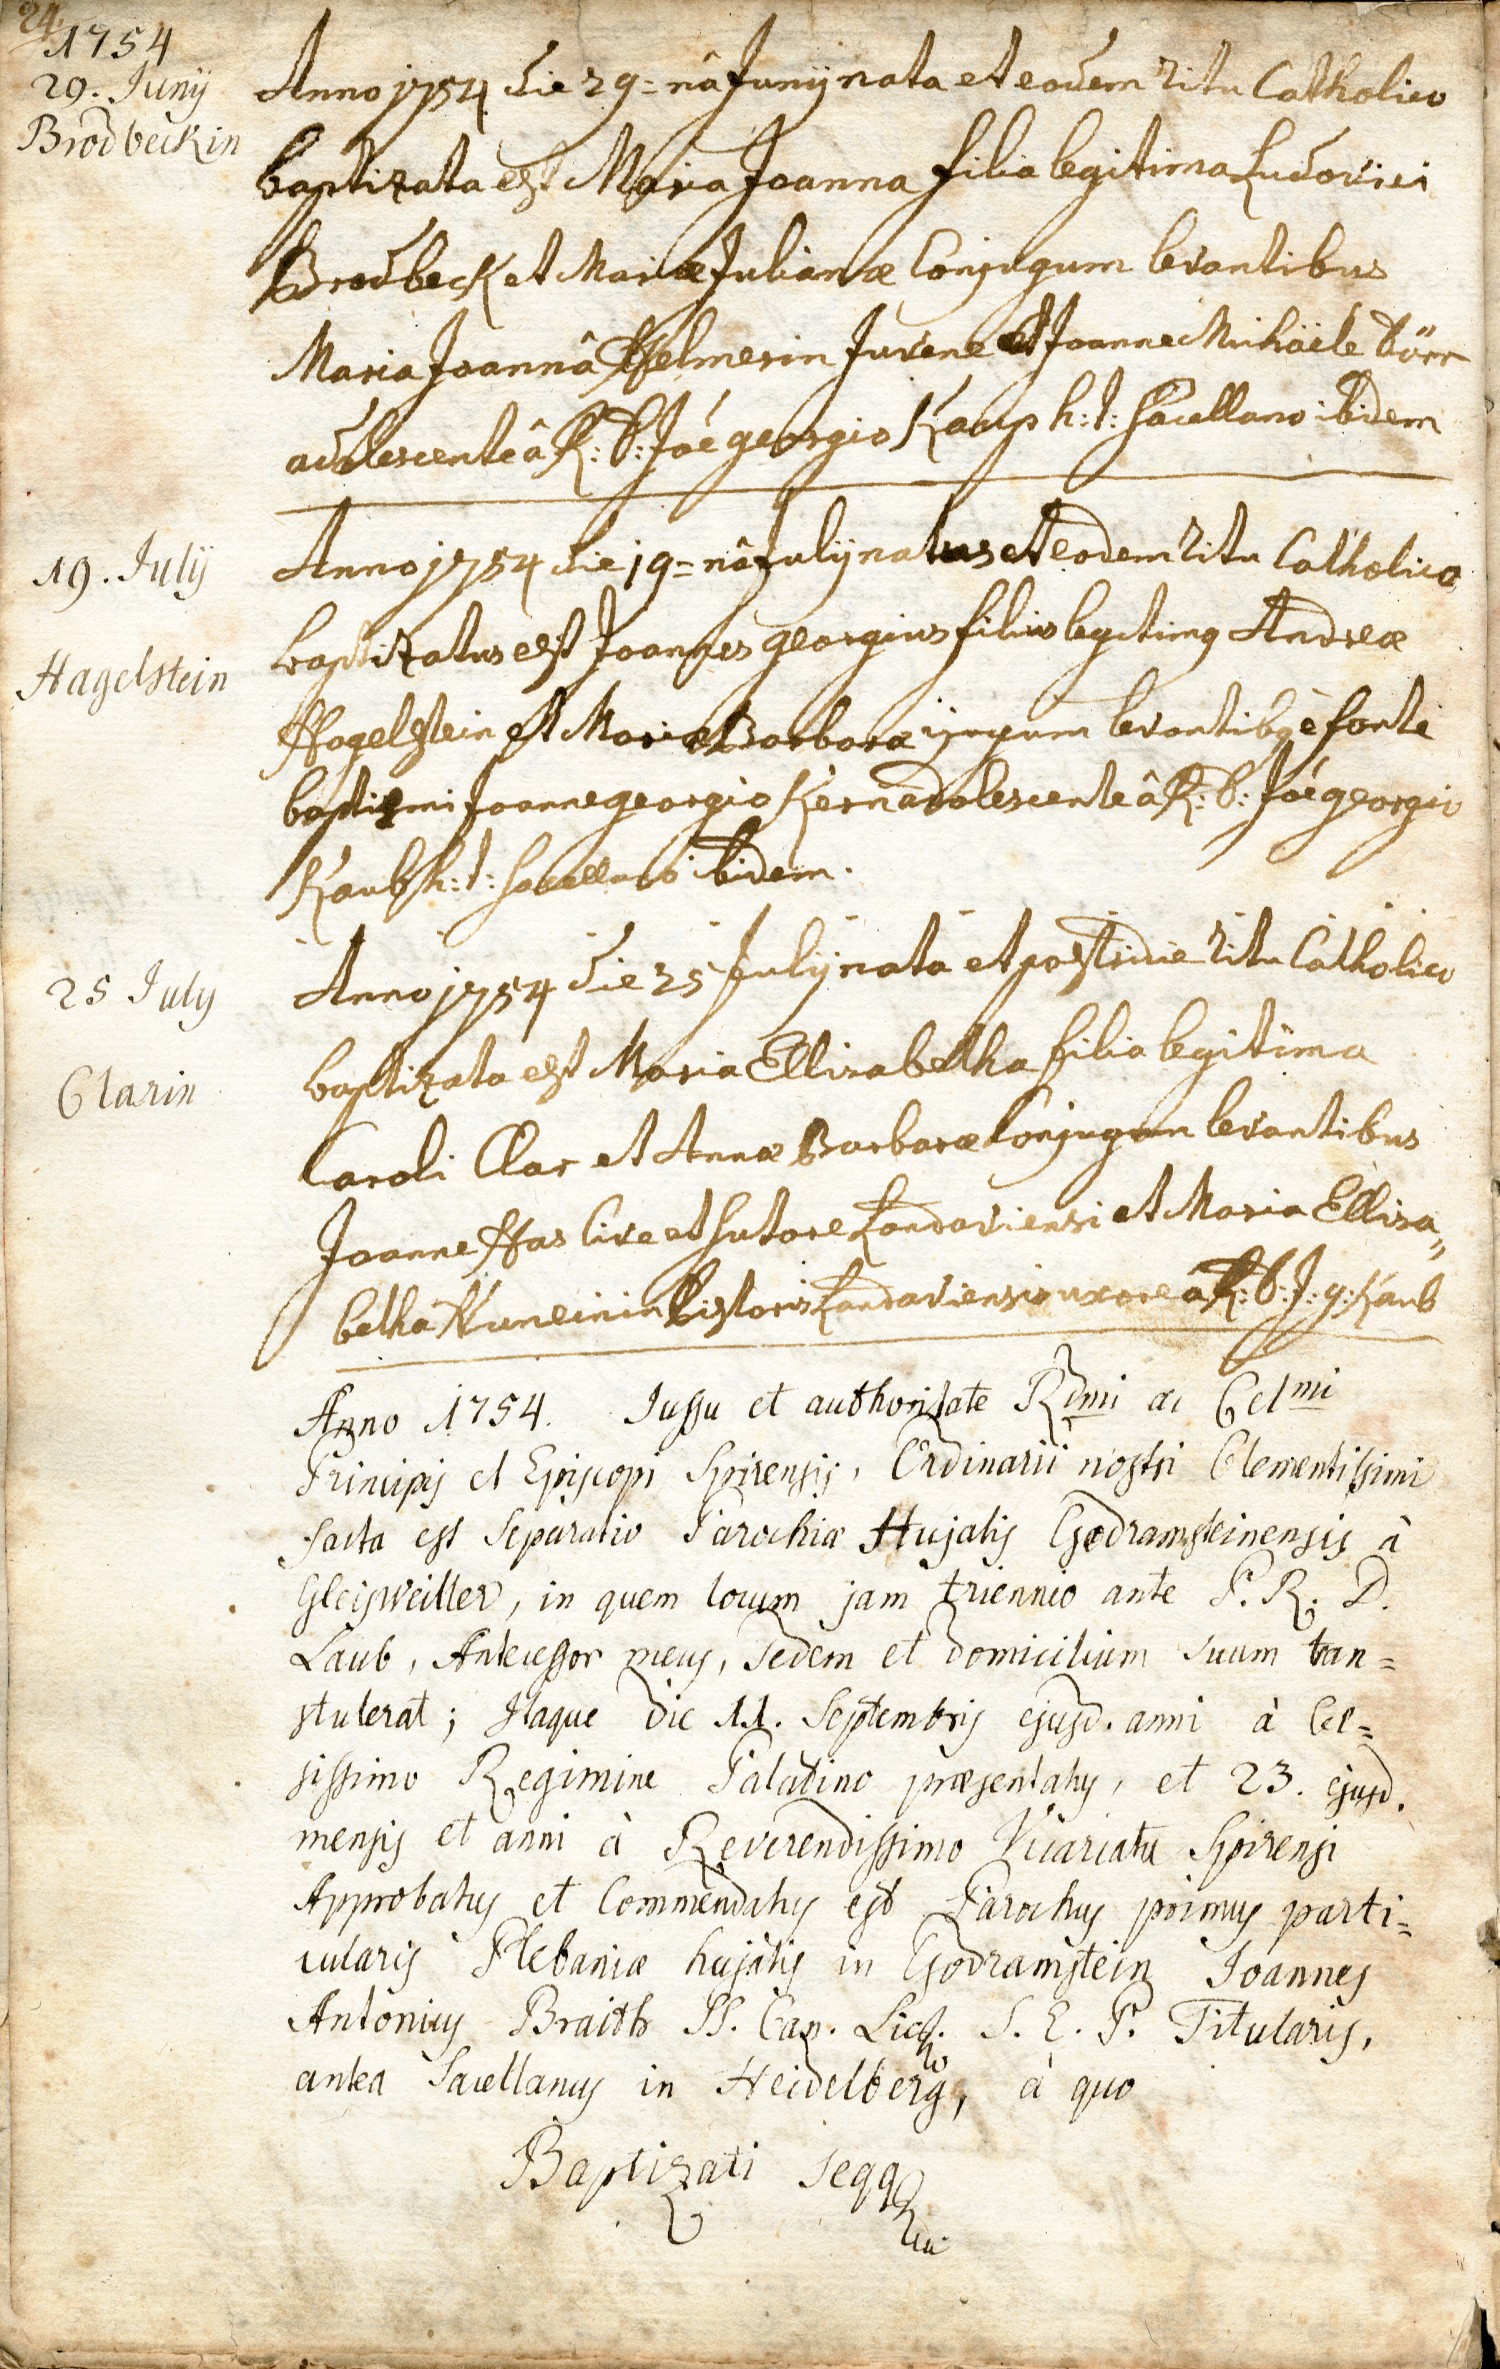 24.
1754
29. Junij
Brodbeckin
Anno 1754 die 29=nâ Junij nata et eodem ritu Catholico
baptizata est Maria Joanna filia legitima Ludovici
Brodbeck et Mariæ Julianæ Conjugum levantibus
Maria Joannâ Helmerin Juvene et Joanne Michäele Dörr
adolescente â R: D: Joé georgio Kaup h: t: Sacellano ibidem
19. Julij
Hagelstein
Anno 1754 die 19=nâ Julij natus et eodem ritu Catholico
baptizatus est Joannes georgius filius legitimq Andreæ
Hagelstein et Mariæ Barbaræ levantibq è fonte
baptismi Joanne georgio Kern adolescente â R: D: Joé georgio
Kaub h: t: Sacellano ibidem.
25 July
Clarin
Anno 1754 die 25 Julij nata et postridie ritu Catholico
baptizata est Maria Ellisabetha filia legitima
Caroli Clar et Annæ Barbaræ Conjugum levantibus
Joanne Has Cive et Sutore Landaviensi et Maria Ellisa„
betha pistoris Landaviensis uxore â R: D: J: g: Kaub
Anno 1754. Jussu et authoritate Rdmi ac Celmi
Principis et Episcopi Spirensis, Ordinarii nostri Clementissimi
facta est Separatio Parochiæ Hujatis Godramsteinensis à
Gleisweiller, in quem locum jam triennio ante P. R. D.
Laub, Antecessor meus, sedem et domicilium suum tran=
stulerat; Itaque die 11. Septembris ejusd. anni à Cel=
sissimo Regimine Palatino præsentatus, et 23. ejusd.
mensis et anni à Reverendissimo Vicariatu Spirensi
Approbatus et Commendatus est Parochus primus parti=
cularis Plebaniæ hujatis in Godramstein Joannes
Antonius Braith SS. Can. Lict. S. E. P. Titularis,
antea Sacellanus in Heidelberg, à quo
Baptizati seqq